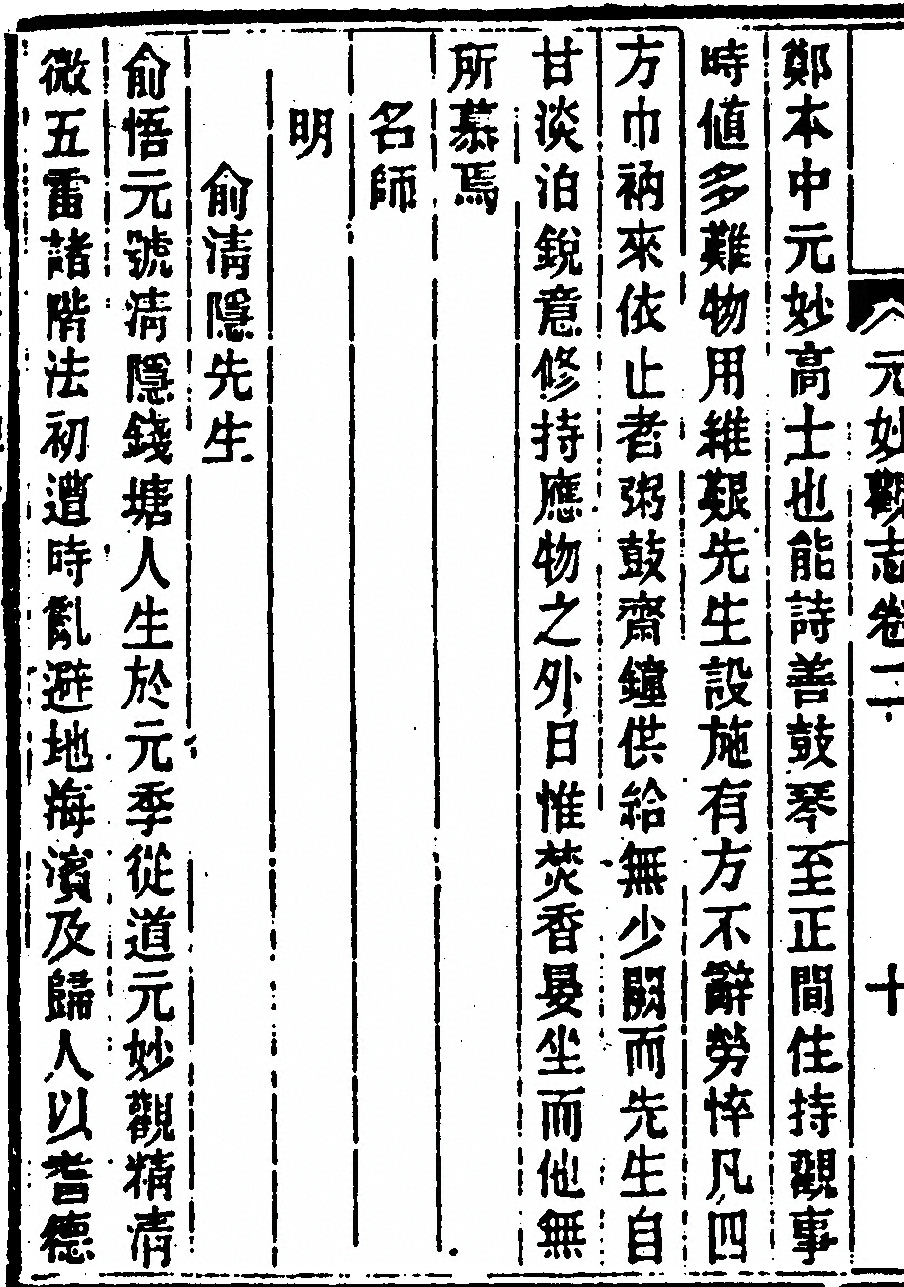 元妙觀志卷二 十
鄭本中元妙高士也能詩善鼓琴至正間住持觀事
時値多難物用維艱先生設施有方不辭勞悴凡四
方巾衲來依止者粥鼓齋鐘供給無少闕而先生自
甘淡泊銳意修持應物之外日惟焚香晏坐而他無
所慕焉
名師
明
俞淸隱先生
俞悟元號淸隱錢塘人生於元季從道元妙觀精淸
微五雷諸階法初遭時亂避地海濱及歸人以耆德